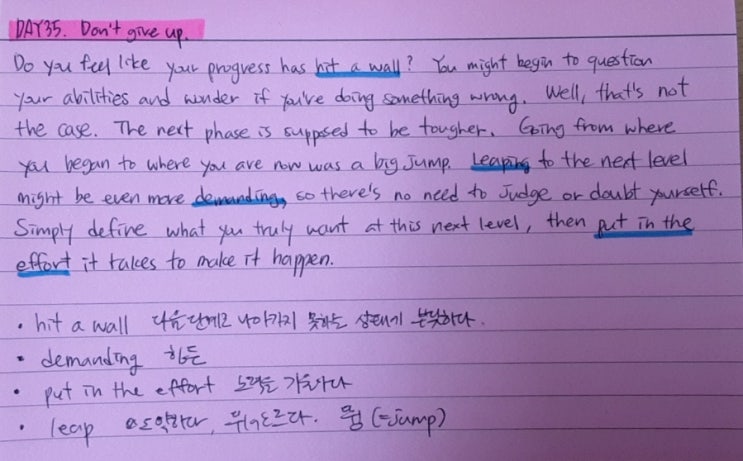 DAY35. Don't give up.
Do you feel like your progress has hit a wall? You might begin to question
your abilities and wonder if you've doing something wrong. Well, that's not
the case. The next phase is supposed to be tougher. Going from where
you began to where you are now was a big jump. Leaping to the next level
might be even more demanding, so there's no need to judge or doubt yourself.
Simply define what you truly want at this next level, then put in the
effort it takes to make it happen.
• hit a wall 다음단계로 나아가지 못하는 상태에 부딪하다.
• demanding 힘든
• put in the effort 노력을
• leap 도약하다, 뛰어오르다. 뜀 (=jump)